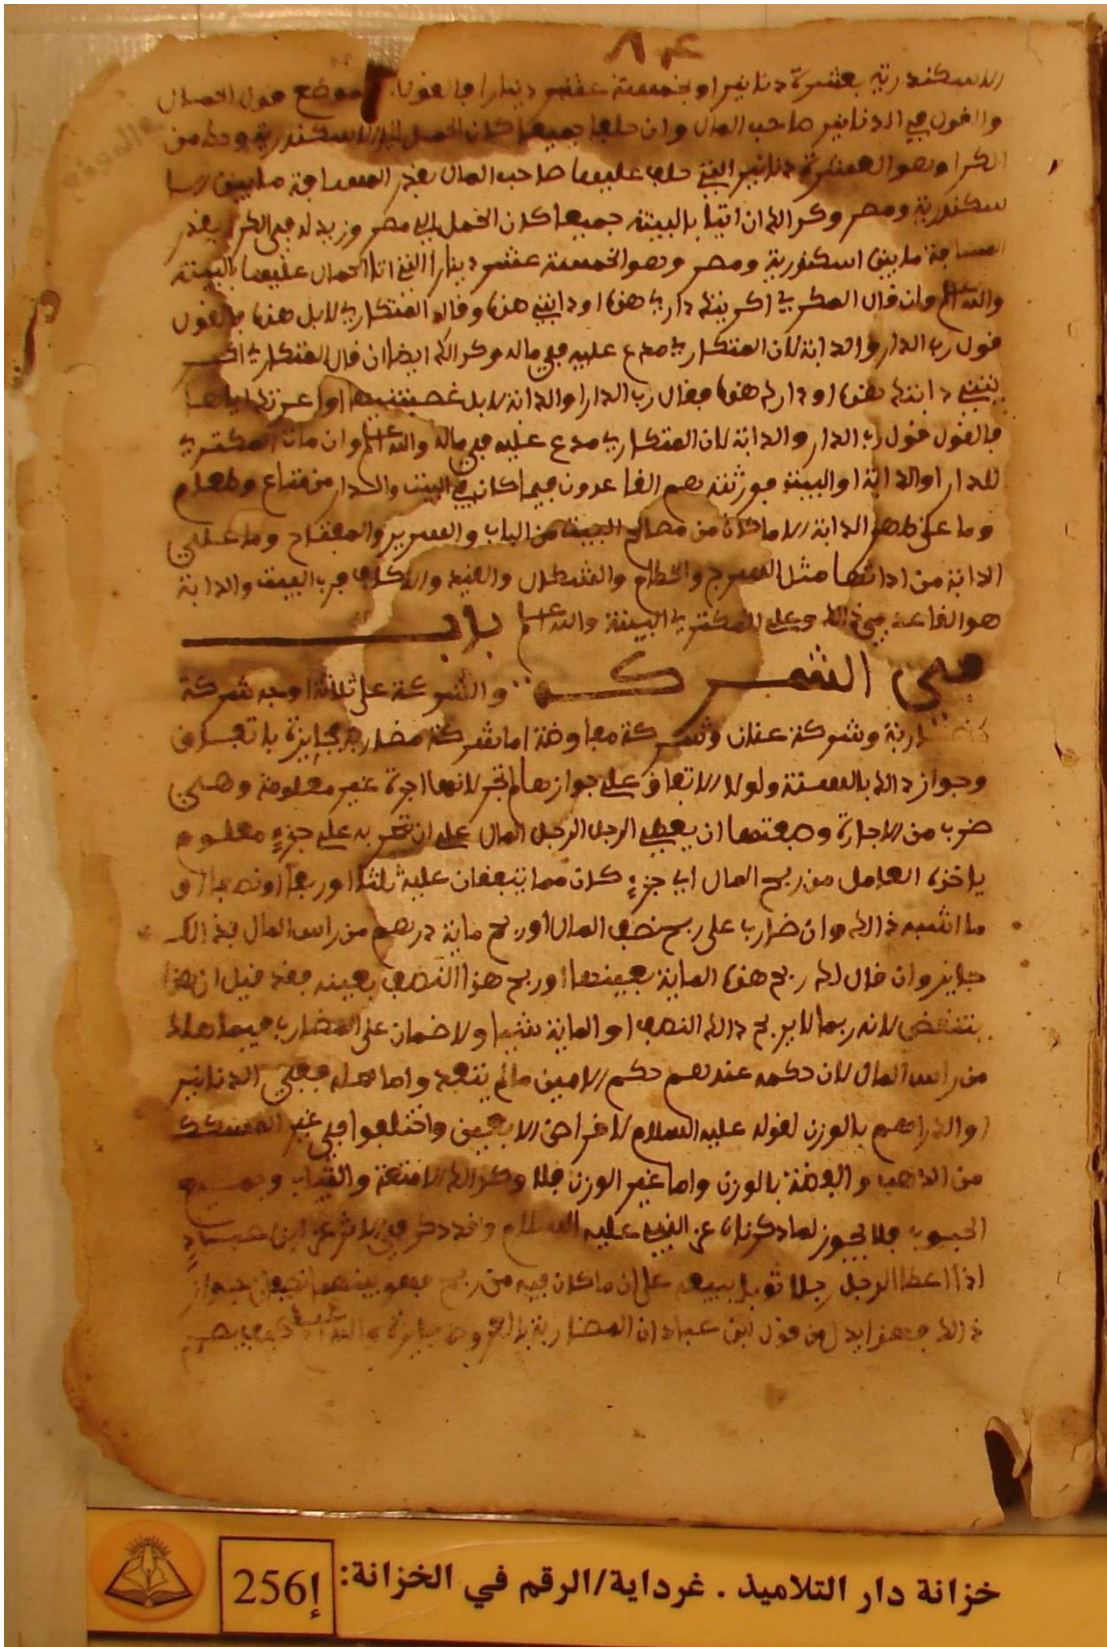 الاسكندرية بعشرة دنانير او بخمسة عشر دينارا فالقول موضع قول الحمال
والقول في الدنانير صاحب المال وان حلفا جميعا كان الحمل الى الاسكندرية وحط من
الكرا وهو العشرة دنانير التي حلف عليها صاحب المال بقدر المسافة ما بين الا
سكندرية ومصر وكذالك ان اتيا بالبينة جميعا كان الحمل الى مصر وزيد له في الكرا بقدر
المسافة ما بين اسكندرية ومصر وهو الخمسة عشر دينارا التي اتا الحمال عليها بالبينة
والله اعلم وان قال المكري اكريتك داري هذه او دابتي هذه وقال المتكاري لا بل هذه فالقول
قول رب الدار والدابة لان المتكاري مدع عليه في ماله وكذالك ايضا ان قال المتكاري اكر
يتني دابتك هذه او دارك هذه فقال رب الدار او الدابة لا بل غصبتنيها او اعرتك اياها
فالقول قول رب الدار والدابة لان المتكاري مدع عليه في ماله والله اعلم وان مات المكتري
للدار او الدابة او البيت فورثته هم القاعدون فيما كان في البيت والدار من متاع وطعام
وما على ظهر الدابة الا ما كان من مصالح البيت من الباب والسرير والمفتاح وما على
الدابة من اداتها مثل السرج والخطام والشكال والقيد والاكاف فرب البيت والدابة
هو القاعد في ذالك وعلى المكتري البينة والله اعلم باب
في الشركة والشركة على ثلاثة اوجه شركة
مضاربة وشركة عنان وشركة مفاوضة اما شركة مضاربة فجايزة باتفاق
وجواز ذالك بالسنة ولولا الاتفاق على جوازها لم تجز لانها اجرة غير معلومة وهي
ضرب من الاجارة وصفتها ان يعطي الرجل الرجل المال على ان تجر به على جزء معلوم
ياخذه العامل من ربح المال اي جزء كان مما يتفقان عليه ثلثا او ربعا او نصفا او
ما اشبه ذالك وان ضارب على ربح نصف المال او ربح ماية درهم من راس المال فذالك
جايز وان قال له ربح هذه الماية بعينها او ربح هذا النصف بعينه فقد قيل ان هذا
ينتقض لانه ربما لا يربح ذالك النصف او الماية شيئا ولا ضمان على المضارب فيما هلك
من راس المال لان حكمه عندهم حكم الامين ما لم يتعد واما محله ففي الدنانير
والدراهم بالوزن لقوله عليه السلام لا قراض الا بعين واختلفوا في غير المسكك
من الذهب والفضة بالوزن واما غير الوزن فلا وكذالك الامتعة والثياب وجميع
الحبوب فلا يجوز لما ذكرنا عن النبي عليه السلام وقد ذكر في الاثر عن ابن عباد
اذا اعطا الرجل رجلا ثوبا يبيعه على ان ما كان فيه من ربح فهو بينهما نصفان جواز
ذالك فهذا يدل من قول ابن عباد ان المضاربة بالعروض جايزة والله اعلم
خزانة دار التلاميذ . غرداية/الرقم في الخزانة: إ256